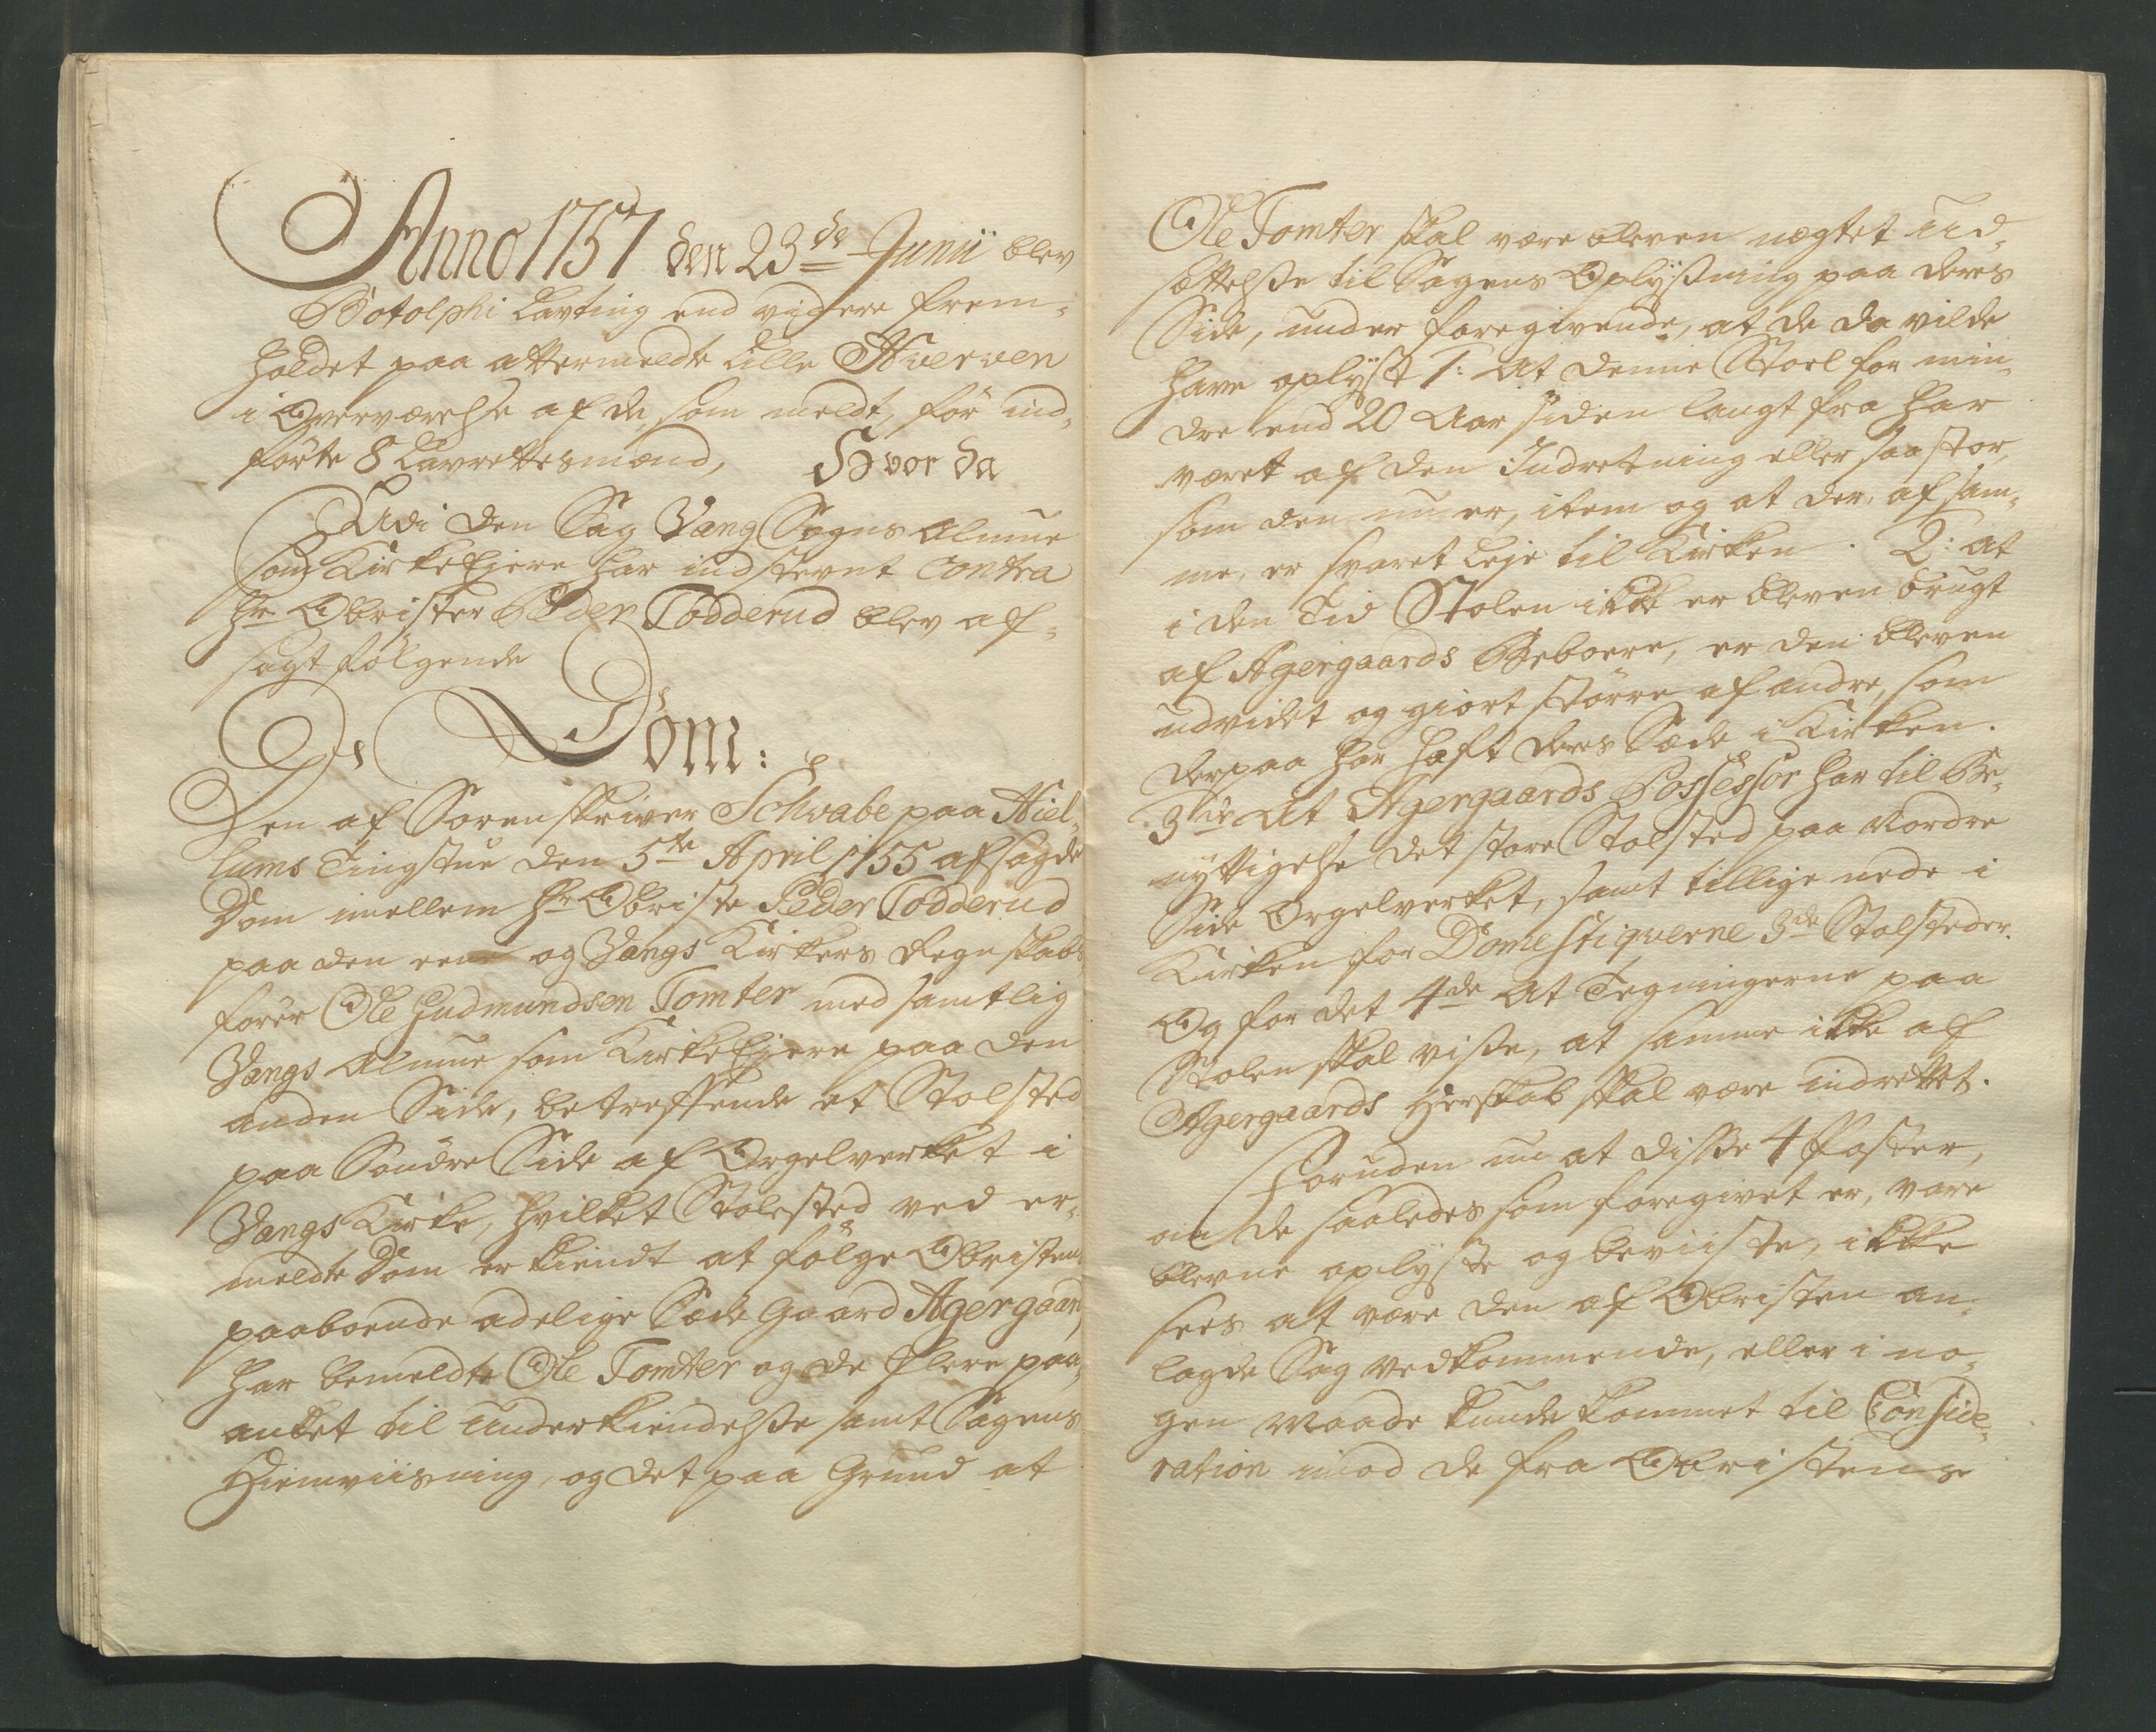 Anno 1757 den 23de Junii blev
Botolphi Lavting end videre frem-
holdet paa ottermeldte Lille Hverven
i Overværelse af de, som meldt, før ind-
førte 8 Lavrettesmænd, Hvor da
Udi den Sag Vang Sogns Almue
som KirkeEjere har indstevnt Contra
Hr Obrister Peder Todderud blev af-
sagt følgende
Dom:
Den af Sorenskriver Schwabe paa Hiel-
lums Tingstue den 5te April 1755 afsagde
Dom imellem Hr Obriste Peder Todderud
paa den eene og Vangs Kirkes Regnskabs
fører Ole Gudmundsen Tomter med samtlig
Vangs Almue som KirkeEjere paa den
anden Side, betreffende et Stolsted
paa Søndre Side af Orgelverket i
Vangs Kirke, hvilket Stolested ved er-
meldte Dom er kiendt at følge Obristens
paaboende adelige SædeGaard Agergaard,
har bemeldte Ole Tomter og de flere paa-
anket til Underkiendelsse samt Sagens
Hiemviisning, og det paa Grund at
Ole Tomter skal være bleven nægtet Ud-
sættelsse til Sagens Oplyssning paa deres
Side, under foregivende, at de da vilde
have oplyst 1: At denne Stoel for min-
dre end 20 Aar siden langt fra har
været af den Indretning eller saa stor,
som den nu er, item og at der af sam-
me, er svaret Leje til Kirken. 2: at
i den Tid Stolen ikke er bleven brugt
af Agergaards Beboere, er den bleven
udvidet og giort større af andre, som
derpaa har haft deres Sæde i Kirken.
3die At Agergaards Possessor har til Be-
nyttigelse det store Stolsted paa Nordre
Side Orgelverket, samt tillige nede i
Kirken for Domestiqverne 3de Stolsteder.
Og for det 4de At Tegningerne paa
Stolen skal visse, at samme ikke af
Agergaards Herskab skal være indrettet.
Foruden nu at disse 4 Poster,
om de saaledes som foregivet er, vare
blevne oplyste og beviiste, ikke
sees at være den af Obristen an-
lagde Sag vedkommende, eller i no-
gen Maade kunde kommet til Conside-
ration imod de fra Obristens